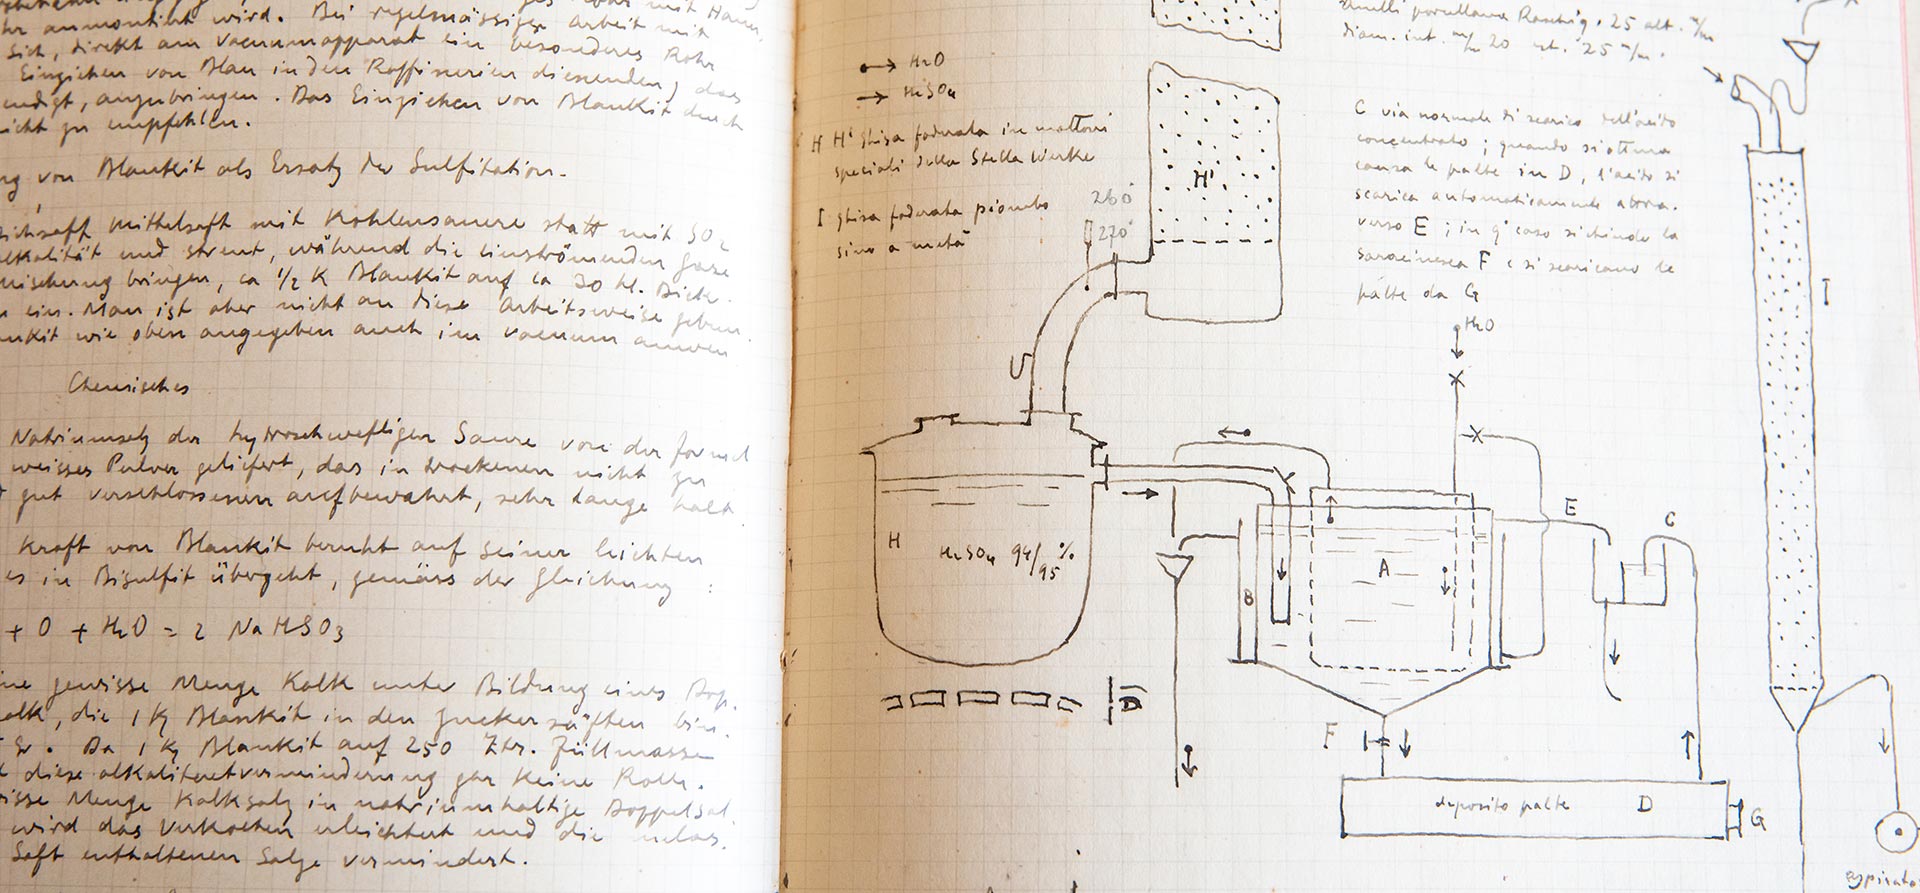 wird. Bei regelmässiger Arbeit mit
sich, direkt am Vacuumapparat ein besonderes Rohr
Einziehen von Blan in den Raffinerien dienenden) das
endigt, anzubringen. Das Einziehen von Blankit durch
nicht zu empfehlen.
ng von Blankit als Ersatz der Sulfitation.
Mittelsaft mit Kohlensäure statt mit SO2
alkalität und strent, während die einströmenden Gase
mischung bringen, ca 1/2 K Blankit auf ca 30 hl. Dick-
ein. Man ist aber nicht an diese Arbeitsweise gebun
nkit wie oben angegeben auch im Vacuum anwen
Chemisches
Natriumsalz der hydroschwefligen Säure von der Formel
weisses Pulver geliefert, das in trockenem nicht zu
gut verschlossenem aufbewahrt, sehr lange halt
Kraft von Blankit beruht auf seiner leichten
es in Bisulfit übergeht, gemäss der Gleichung :
+ O + H2O = 2 NaHSO3
ine gewisse Menge Kalk unter Bildung eines Dop.
alk, die 1 Kg Blankit in den Zuckersäften bin.
Da 1 Kg Blankit auf 250 Ztr. Füllmassen
diese Alkalitätverminderung gar keine Rolle.
isse Menge Kalksalz in natriumhaltige Doppelsal.
wird das Verkochen erleichtert und die melas.
Saft enthaltenen Salze vermindert.
anelli porcellana Raschig. 25 alt. m/m
diam. int. m/m 20 est. 25 m/m.
H2O
H2SO4
H H' ghisa foderata in mattoni
speciali della Stella Werke
I ghisa foderata piombo
sino a metà
260°
270°
H'
C via normale di scarico dell'acido
concentrato; quando si ottura
causa le palte in D, l'acido si
scarica automaticamente allora
verso E; in q' caso si chiude la
saracinesca F e si scaricano le
palte da G
I
H2O
H
H2SO4 94/95 %
B
A
E
C
D
F
deposito palte D
G